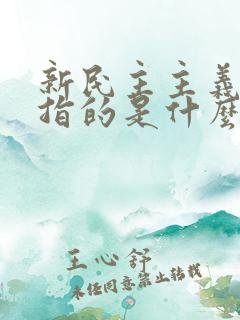 新民主主义
指的是什麼
王心舒
未经同意禁止转载